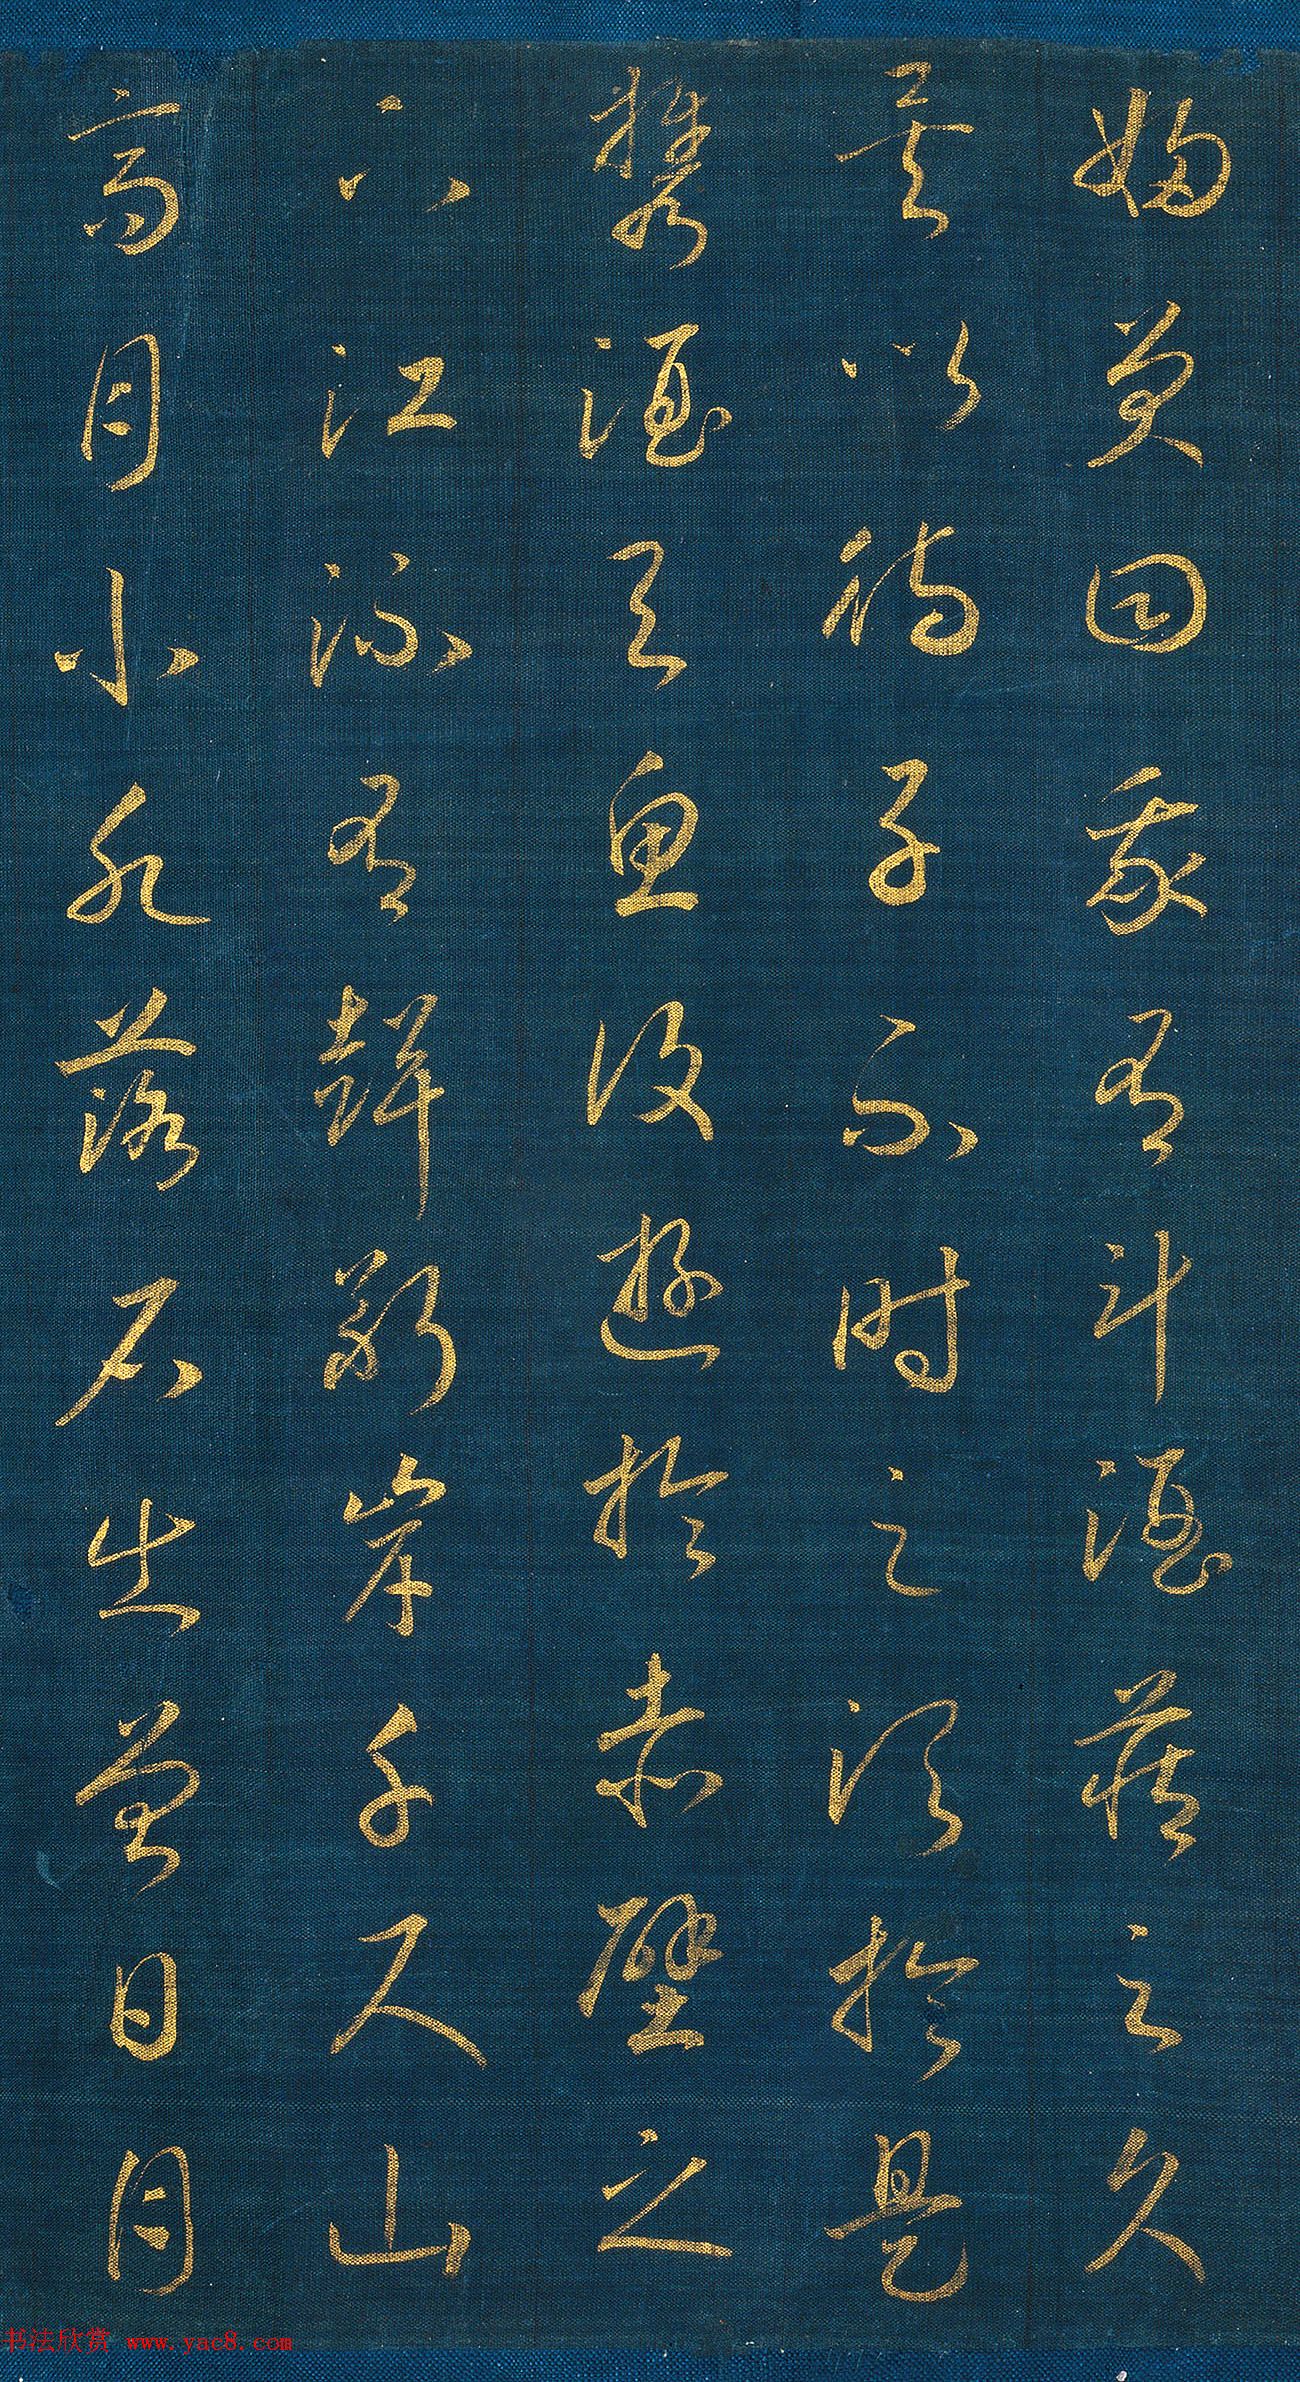 婦曰我有斗酒藏之久
矣以待子不時之須於是
攜酒與魚復遊於赤壁之
下江流有聲斷岸千尺山
高月小水落石出曾日月
书法欣赏 www.yac8.com